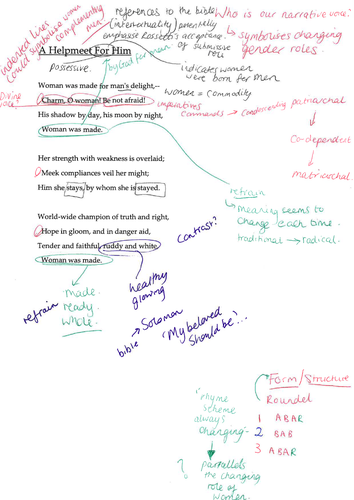 references to the bible
(intertextuality) potentially
emphasise Rossetti's acceptance
of submissive
role
Who is our narrative voice?
symbolises changing
gender roles.
indented lines
could symbolise women
complementing
men
A Helpmeet For Him
Possessive.
by God for men
indicates women
were born for men
women = commodity
Divine
voice?
Woman was made for man's delight,--
Charm, O woman! Be not afraid!
imperatives
commands → condescending
patriarchal
His shadow by day, his moon by night,
Woman was made.
Co-dependent
matriarchal
Her strength with weakness is overlaid;
Meek compliances veil her might;
Him she stays, by whom she is stayed.
refrain
meaning seems to
change each time.
traditional → radical.
World-wide champion of truth and right,
Hope in gloom, and in danger aid,
Tender and faithful, ruddy and white,
Woman was made.
contrast?
refrain
made.
ready.
whole.
healthy
glowing
bible → Solomon
'My beloved
should be'...
Form/Structure
Roundel
1 ABAR
2 BAB
3 ABAR
rhyme
scheme
always
changing
?
parallels
the changing
role of
women.